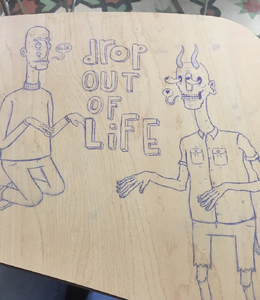 drop
OUT
OF
LiFE